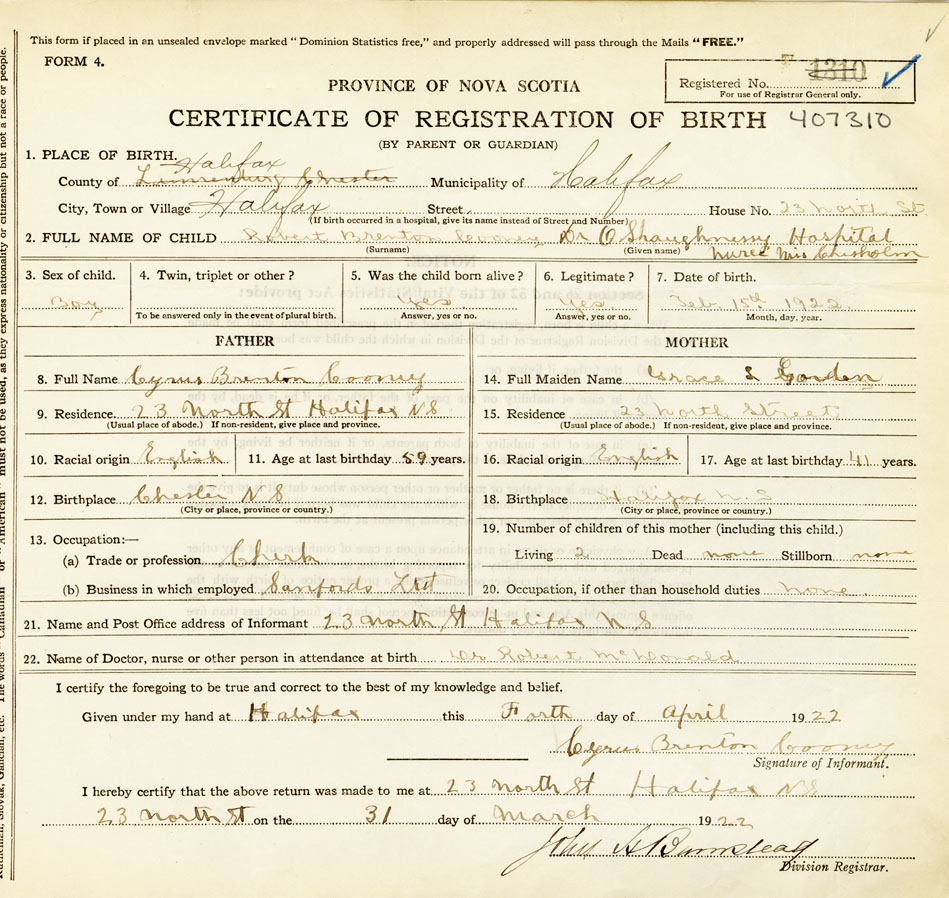 This form if placed in an unsealed envelope marked "Dominion Statistics free," and properly addressed will pass through the Mails "FREE."
FORM 4.
Registered No. 1310
For use of Registrar General only.
PROVINCE OF NOVA SCOTIA
CERTIFICATE OF REGISTRATION OF BIRTH 407310
(BY PARENT OR GUARDIAN)
1. PLACE OF BIRTH.
Halifax
County of Lunenburg Chester Municipality of Halifax
City, Town or Village Halifax Street House No. 23 North St
(If birth occurred in a hospital, give its name instead of Street and Number)
2. FULL NAME OF CHILD Robert Brenton Cooney Dr O'Shaughnessy Hospital
(Surname) (Given name) Nurse Miss Chisholm
3. Sex of child. 4. Twin, triplet or other? 5. Was the child born alive? 6. Legitimate? 7. Date of birth.
Boy Yes Yes Feb. 15th 1922
To be answered only in the event of plural birth. Answer, yes or no. Answer, yes or no. Month, day, year.
FATHER MOTHER
8. Full Name Cyrus Brenton Cooney 14. Full Maiden Name Grace S Gorden
9. Residence 23 North St Halifax N S 15. Residence 23 North Street
(Usual place of abode.) If non-resident, give place and province. (Usual place of abode.) If non-resident, give place and province.
10. Racial origin English 11. Age at last birthday 59 years. 16. Racial origin English 17. Age at last birthday 41 years.
12. Birthplace Chester N S 18. Birthplace Halifax N. S
(City or place, province or country.) (City or place, province or country.)
13. Occupation:— 19. Number of children of this mother (including this child.)
(a) Trade or profession Clerk Living 2 Dead none Stillborn none
(b) Business in which employed Sanfords Ltd 20. Occupation, if other than household duties none
21. Name and Post Office address of Informant 23 North St Halifax N S
22. Name of Doctor, nurse or other person in attendance at birth Dr Robert McDonald
I certify the foregoing to be true and correct to the best of my knowledge and belief.
Given under my hand at Halifax this Forth day of April 1922
Cyrus Brenton Cooney
Signature of Informant.
I hereby certify that the above return was made to me at 23 North St Halifax N S
23 North St on the 31 day of March 1922
John A Barnstead
Division Registrar.